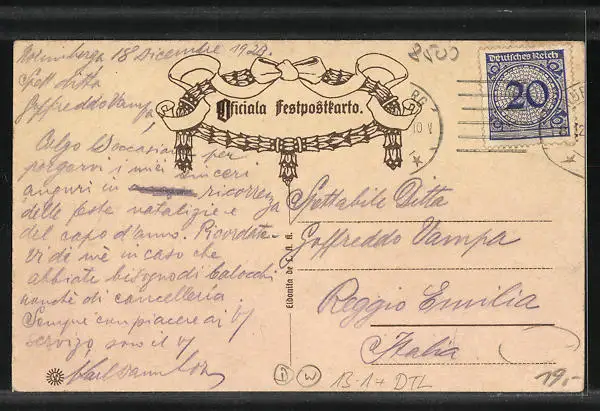 Norimberga 18 Dicembre 1923.
Spett. ditta
Goffredo Vampa
Colgo l'occasione per
porgervi i miei sinceri
auguri in ricorrenza
delle feste natalizie e
del capo d'anno. Ricordate-
vi di me in caso che
abbiate bisogno di balocchi
nonchè di cancelleria.
Sempre con piacere ai V/
servizo sono il V/
Oficiala Festpoŝtkarto.
Eldonita de
Deutsches Reich
20
RG
10 V
Spettabile Ditta
Goffreddo Vampa
Reggio Emilia
Italia
B-1+ DTL
19,-